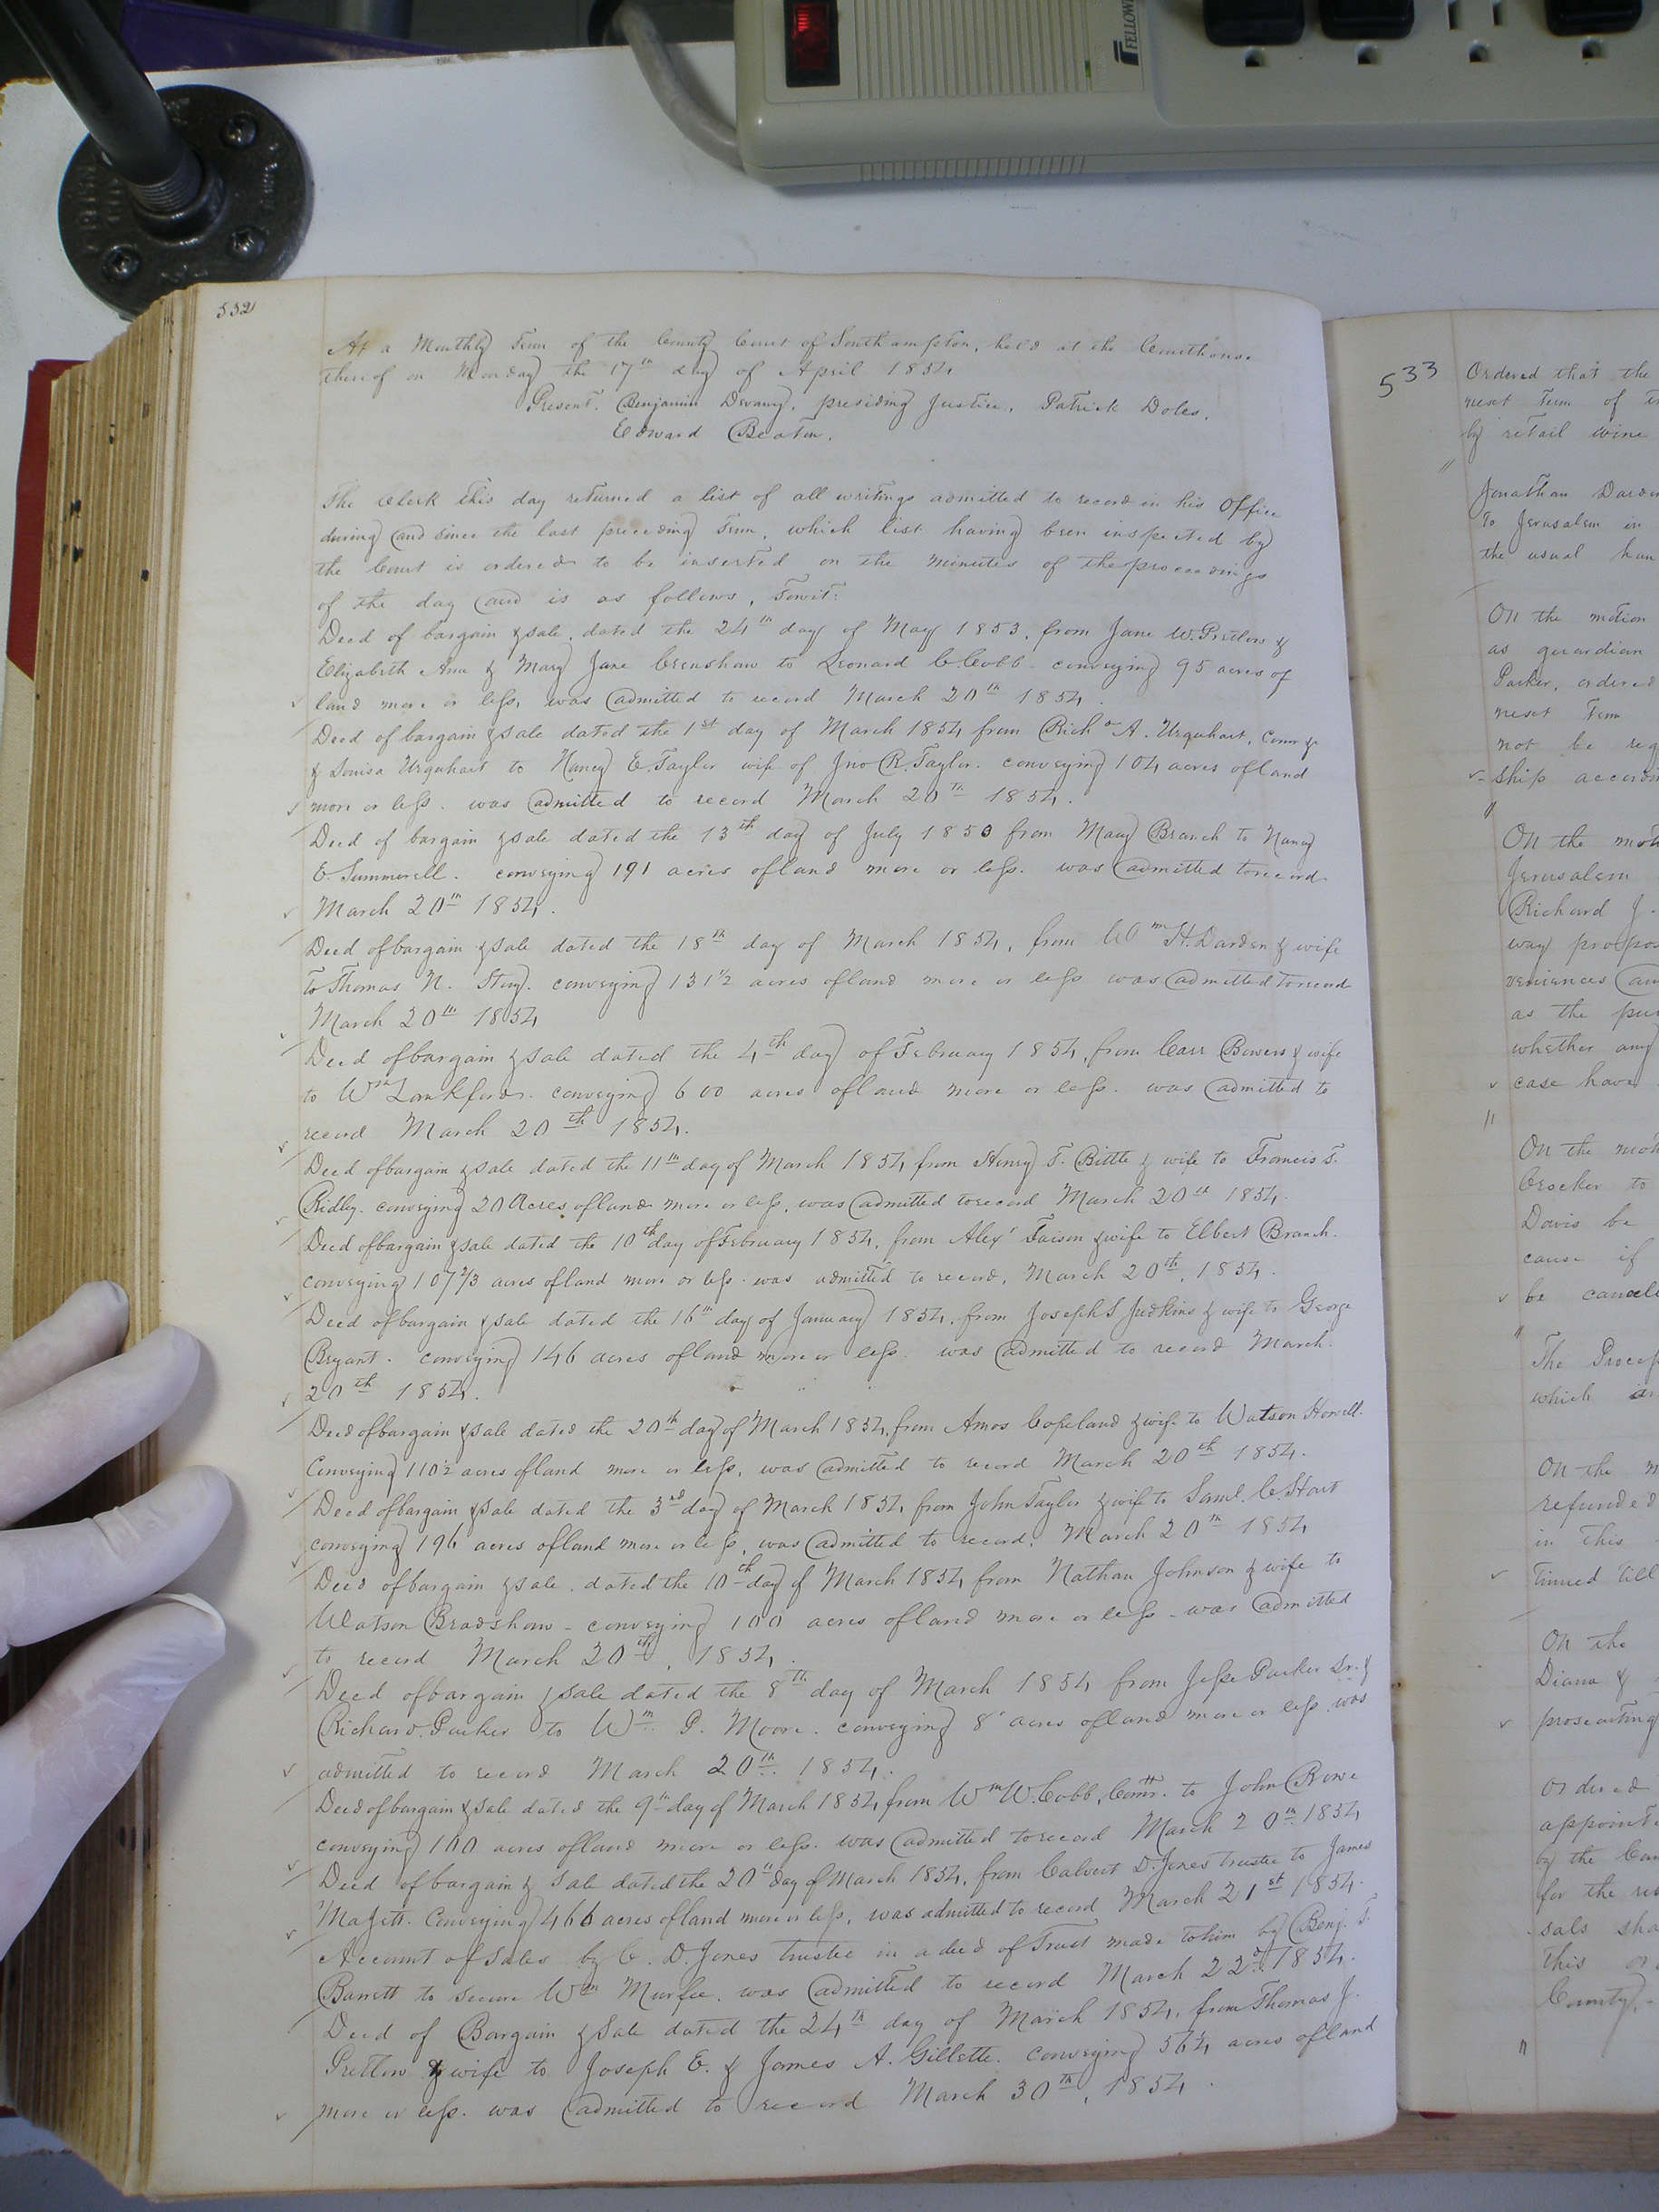 FELLOWE
532
At a Monthly Term of the County Court of Southampton, held at the Courthouse
thereof on Monday the 17th day of April 1854
Present. Benjamin Devany, presiding Justice, Patrick Doles,
Edward Beaton.
The Clerk this day returned a list of all writings admitted to record in his Office
during and since the last preceding Term, which list having been inspected by
the Court is ordered to be inserted on the minutes of the proceedings
of the day and is as follows, Towit:
Deed of bargain & sale, dated the 24th day of May 1853, from Jane W. Pretlow &
Elizabeth Ann & Mary Jane Crenshaw to Leonard C Cobb - conveying 95 acres of
land more or less, was admitted to record March 20th 1854.
Deed of bargain & sale dated the 1st day of March 1854 from Richd A. Urquhart, Comr &
& Louisa Urquhart to Nancy E. Taylor wife of Jno R. Taylor. conveying 104 acres of land
more or less. was admitted to record March 20th 1854.
Deed of bargain & sale dated the 13th day of July 1850 from Mary Branch to Nancy
E. Summerell. conveying 191 acres of land more or less. was admitted to record
March 20th 1854.
Deed of bargain & sale dated the 18th day of March 1854, from Wm H. Darden & wife
to Thomas N. conveying 131½ acres of land more or less was admitted to record
March 20th 1854
Deed of bargain & sale dated the 4th day of February 1854, from Carr Bowers & wife
to Wm Lankford. conveying 600 acres of land more or less. was admitted to
record March 20th 1854.
Deed of bargain & sale dated the 11th day of March 1854 from Henry T. Bittle & wife to Francis T.
Ridley. conveying 20 Acres of land more or less, was admitted to record March 20th 1854.
Deed of bargain & sale dated the 10th day of February 1854, from Alexr Faison & wife to Elbert Branch.
conveying 107⅔ acres of land more or less. was admitted to record, March 20th, 1854.
Deed of bargain & sale dated the 16th day of January 1854, from Joseph S Judkins & wife to George
Bryant. conveying 146 acres of land more or less. was admitted to record March.
20th 1854.
Deed of bargain & sale dated the 20th day of March 1854, from Amos Copeland & wife to Watson Howell.
Conveying 110½ acres of land more or less, was admitted to record March 20th 1854.
Deed of bargain & sale dated the 3rd day of March 1854 from John Taylor & wife to Saml. C. Hart
conveying 196 acres of land more or less, was admitted to record. March 20th 1854
Deed of bargain & sale, dated the 10th day of March 1854 from Nathan Johnson & wife to
Watson Bradshaw - conveying 100 acres of land more or less - was admitted
to record March 20th, 1854.
Deed of bargain & sale dated the 8th day of March 1854 from Jesse Parker Sr. &
Richard Parker to Wm P. Moore. conveying 8 acres of land more or less was
admitted to record March 20th. 1854.
Deed of bargain & sale dated the 9th day of March 1854 from Wm W. Cobb, Comr. to John Rowe
conveying 100 acres of land more or less. was admitted to record March 20th 1854
Deed of bargain & sale dated the 20th day of March 1854, from Calvert D. Jones trustee to James
Majett. Conveying 466 acres of land more or less, was admitted to record March 21st 1854.
Account of Sales by C. D. Jones trustee in a deed of Trust made to him by Benj. T.
Barrett to secure Wm Murfee. was admitted to record March 22d. 1854.
Deed of Bargain & Sale dated the 24th day of March 1854, from Thomas J.
Pretlow & wife to Joseph E. & James A. Gillette. conveying acres of land
more or less. was admitted to record March 30th, 1854.
533
Ordered that the
next Term of
by retail wine
Jonathan
To Jerusalem in
the usual
On the motion
as guardian
Parker, ordered
next Term
not be
ship
On the
Jerusalem
Richard J.
way
veniences
as the
whether any
case have
On the
Crocker to
Davis be
cause if
be
The
which
On the
refunded
in this
tinued till
On the
Diana &
prosecuting
Ordered
by the
for the
sals
this
County,-